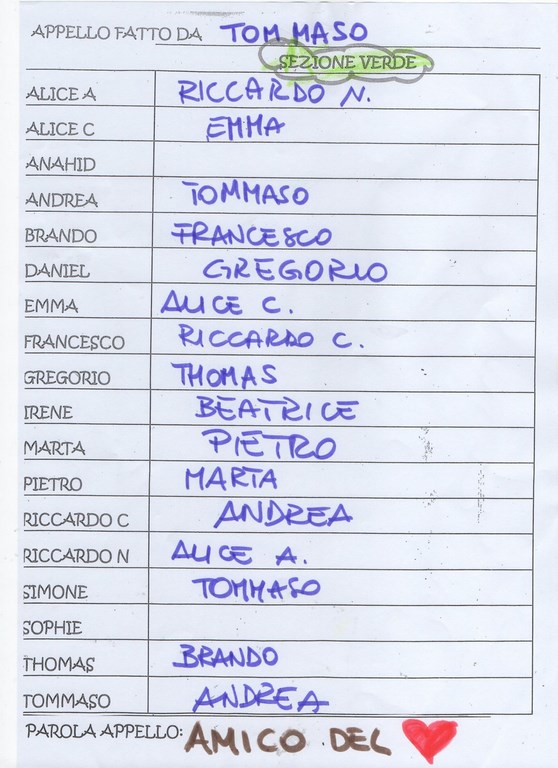 APPELLO FATTO DA TOMMASO
SEZIONE VERDE
ALICE A RICCARDO N.
ALICE C EMMA
ANAHID
ANDREA TOMMASO
BRANDO FRANCESCO
DANIEL GREGORIO
EMMA ALICE C.
FRANCESCO RICCARDO C.
GREGORIO THOMAS
IRENE BEATRICE
MARTA PIETRO
PIETRO MARTA
RICCARDO C ANDREA
RICCARDO N ALICE A.
SIMONE TOMMASO
SOPHIE
THOMAS BRANDO
TOMMASO ANDREA
PAROLA APPELLO: AMICO DEL